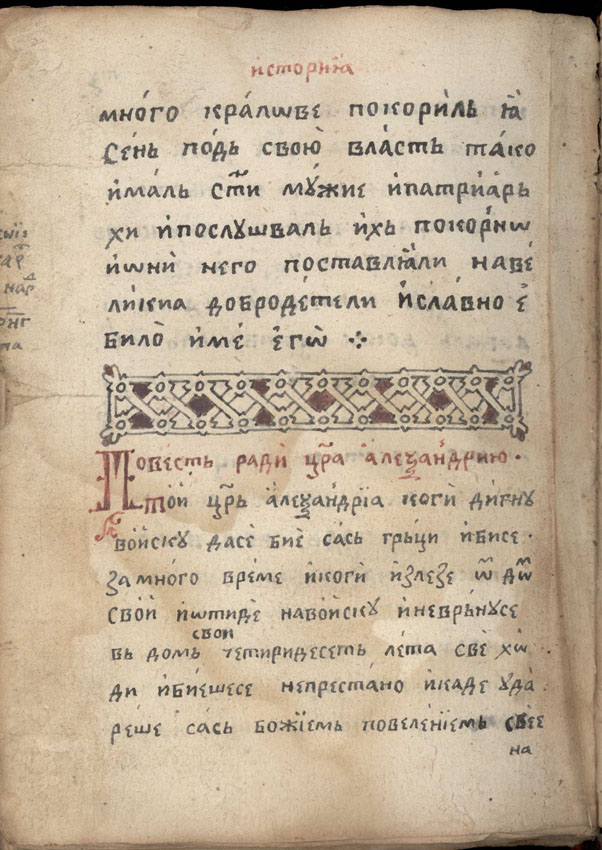 исторїѧ
мно́го кра́лѡве покори́лъ ꙗ҆
сень по́дь свою̀ вла́сть та́ко
и҆малъ ст҃и мꙋ́жие и҆патрїа́рь
хи и҆послꙋ́швалъ и҆́хь поко́рнѡ
и҆ѡни̏ него поставлꙗ́ли наве
ли́киа добродѣ́тели и҆сла́вно е҆
било̀ и҆ме́ е҆гѡ̀
По́весть ради̏ цр҃а а҆леѯа́ндрию
то́и цр҃ь а҆леѯа́ндрїа коги̏ ди́гнꙋ
во́искꙋ дасѐ биѐ са́сь гръ́ци и҆бисе
за мно́го време и҆коги̏ и҆зле́зе ѿ дѡ
свои̏ и҆ѡтидѐ наво́искꙋ и҆невръ́нꙋсе
свои
вь домь четиридесеть лѣ́та свѐ хо́
ди и҆бие́шесе непреста́но и҆каде̏ ꙋда́
реше са́сь бо́жїемь повеле́нїемь свее
на